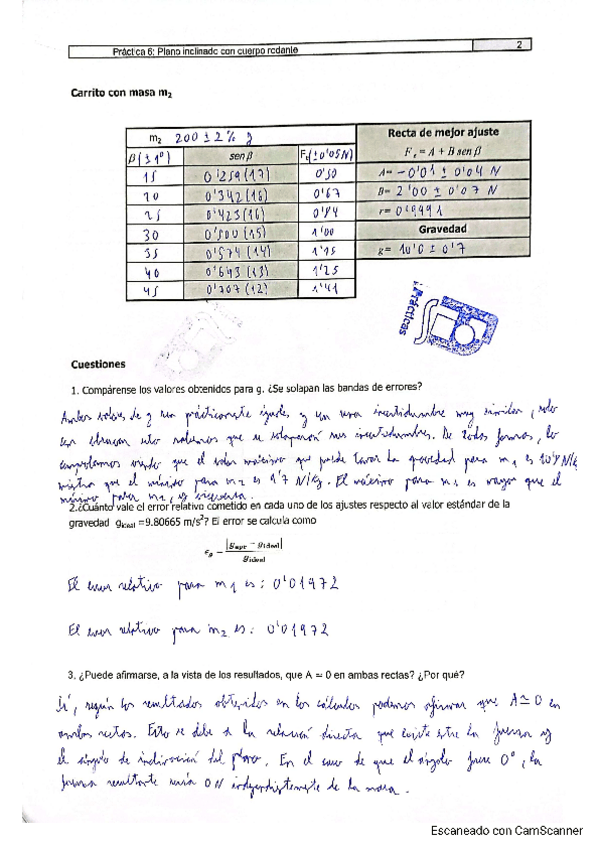 Práctica 6: Plano inclinado con cuerpo rodante 2
Carrito con masa m2
m2 200 ± 2% g
β (±1º) sen β Ft(±0'05N)
15 0'259(17) 0'50
20 0'342(16) 0'67
25 0'423(16) 0'84
30 0'500(15) 1'00
35 0'574(14) 1'15
40 0'643(13) 1'25
45 0'707(12) 1'41
Recta de mejor ajuste
Ft = A + B sen β
A= -0'01 ± 0'04 N
B= 2'00 ± 0'07 N
r= 0'9991
Gravedad
g= 10'0 ± 0'7
Prácticas
Cuestiones
1. Compárense los valores obtenidos para g. ¿Se solapan las bandas de errores?
Ambos valores de g son prácticamente iguales y con una incertidumbre muy similar, solo
con observar esto sabemos que se solaparán sus incertidumbres. De todas formas, lo
comprobamos viendo que el valor máximo que puede tomar la gravedad para m1 es N/kg
mientras que el mínimo para m2 es 9'7 N/kg. El máximo para m1 es mayor que el
mínimo para m2
2.¿Cuánto vale el error relativo cometido en cada uno de los ajustes respecto al valor estándar de la
gravedad gideal =9.80665 m/s²? El error se calcula como
εg = |gexpt − gideal| / gideal
El error relativo para m1 es: 0'01972
El error relativo para m2 es: 0'01972
3. ¿Puede afirmarse, a la vista de los resultados, que A ≃ 0 en ambas rectas? ¿Por qué?
Sí, según los resultados obtenidos en los cálculos podemos afirmar que A≃0 en
ambas rectas. Esto se debe a la relación directa que existe entre la fuerza y
el ángulo de inclinación del plano. En el caso de que el ángulo fuese 0º, la
fuerza resultante sería 0N independientemente de la masa.
Escaneado con CamScanner